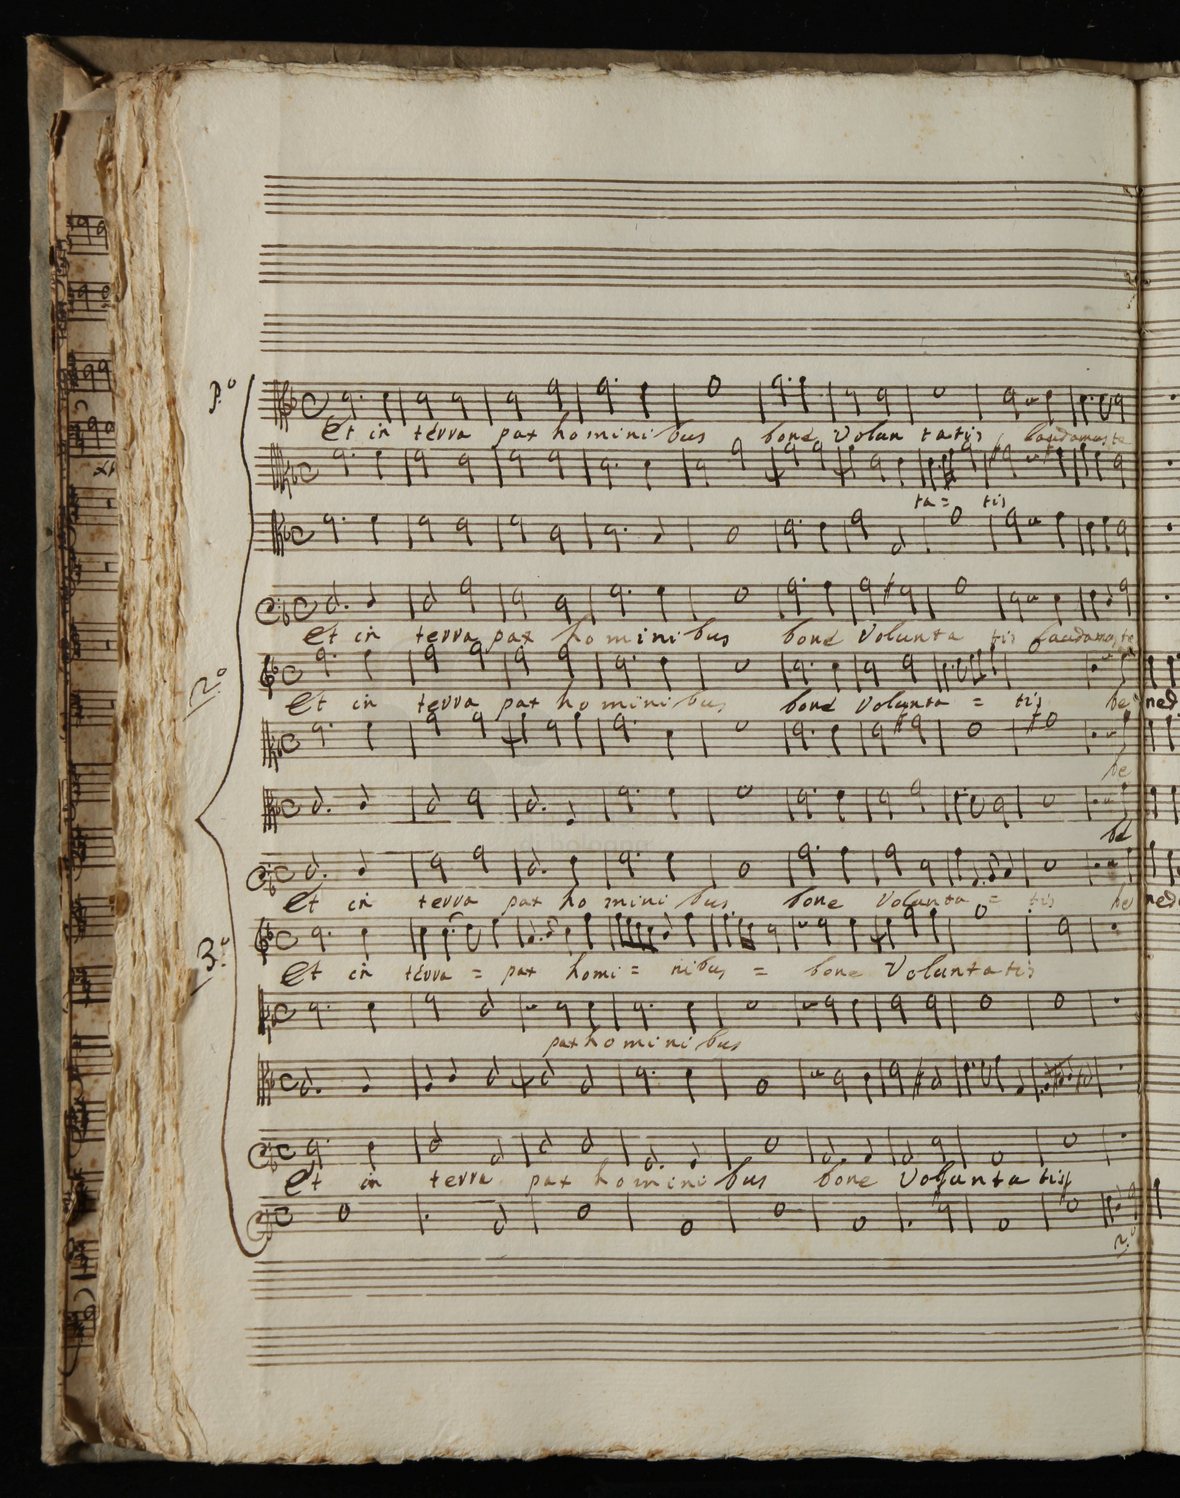 P.º
Et in terra pax homini bus bone Volun tatis laudamus te
ta = tis
Et in terra pax homini bus bone Volunta tis Laudamus te
2.º
Et in terra pax homini bus bone Volunta = tis be ned
be
be
Et in terra pax ho mini bus bone Volunta = tis be ned
3.º
Et in terra = pax homi = nibus = bone Voluntatis
pax homini bus
Et in terra pax homini bus bone Volunta tis
2.º